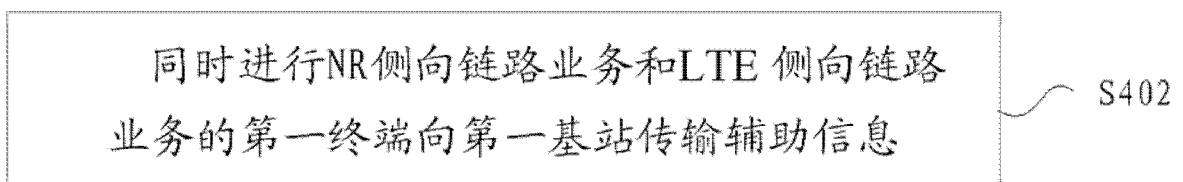 同时进行NR侧向链路业务和LTE 侧向链路
业务的第一终端向第一基站传输辅助信息
S402